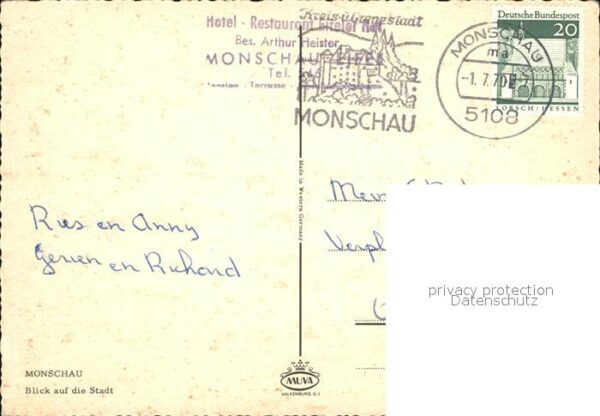 Hotel - Restaurant Eifeler Hof
Bes. Arthur Heister
MONSCHAU EIFEL
Tel.
Pension - Terrasse -
Kreis- u. Grenzstadt
MONSCHAU
MONSCHAU
ma
-1.7.70
5108
Deutsche Bundespost
20
LORSCH/HESSEN
Made in Western Germany
Ries en Anny
Gerien en Richard
privacy protection
Datenschutz
MONSCHAU
Blick auf die Stadt
MUVA
VALKENBURG (L.)